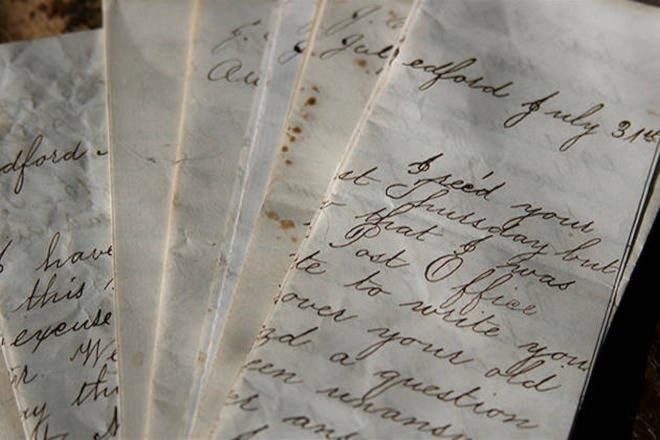 dford
have
this
excuse
We
J. Jul
Au
edford July 31st
I rec'd your
st Thursday but
that I was
Post Office
te to write you
over your old
a question
een unansw